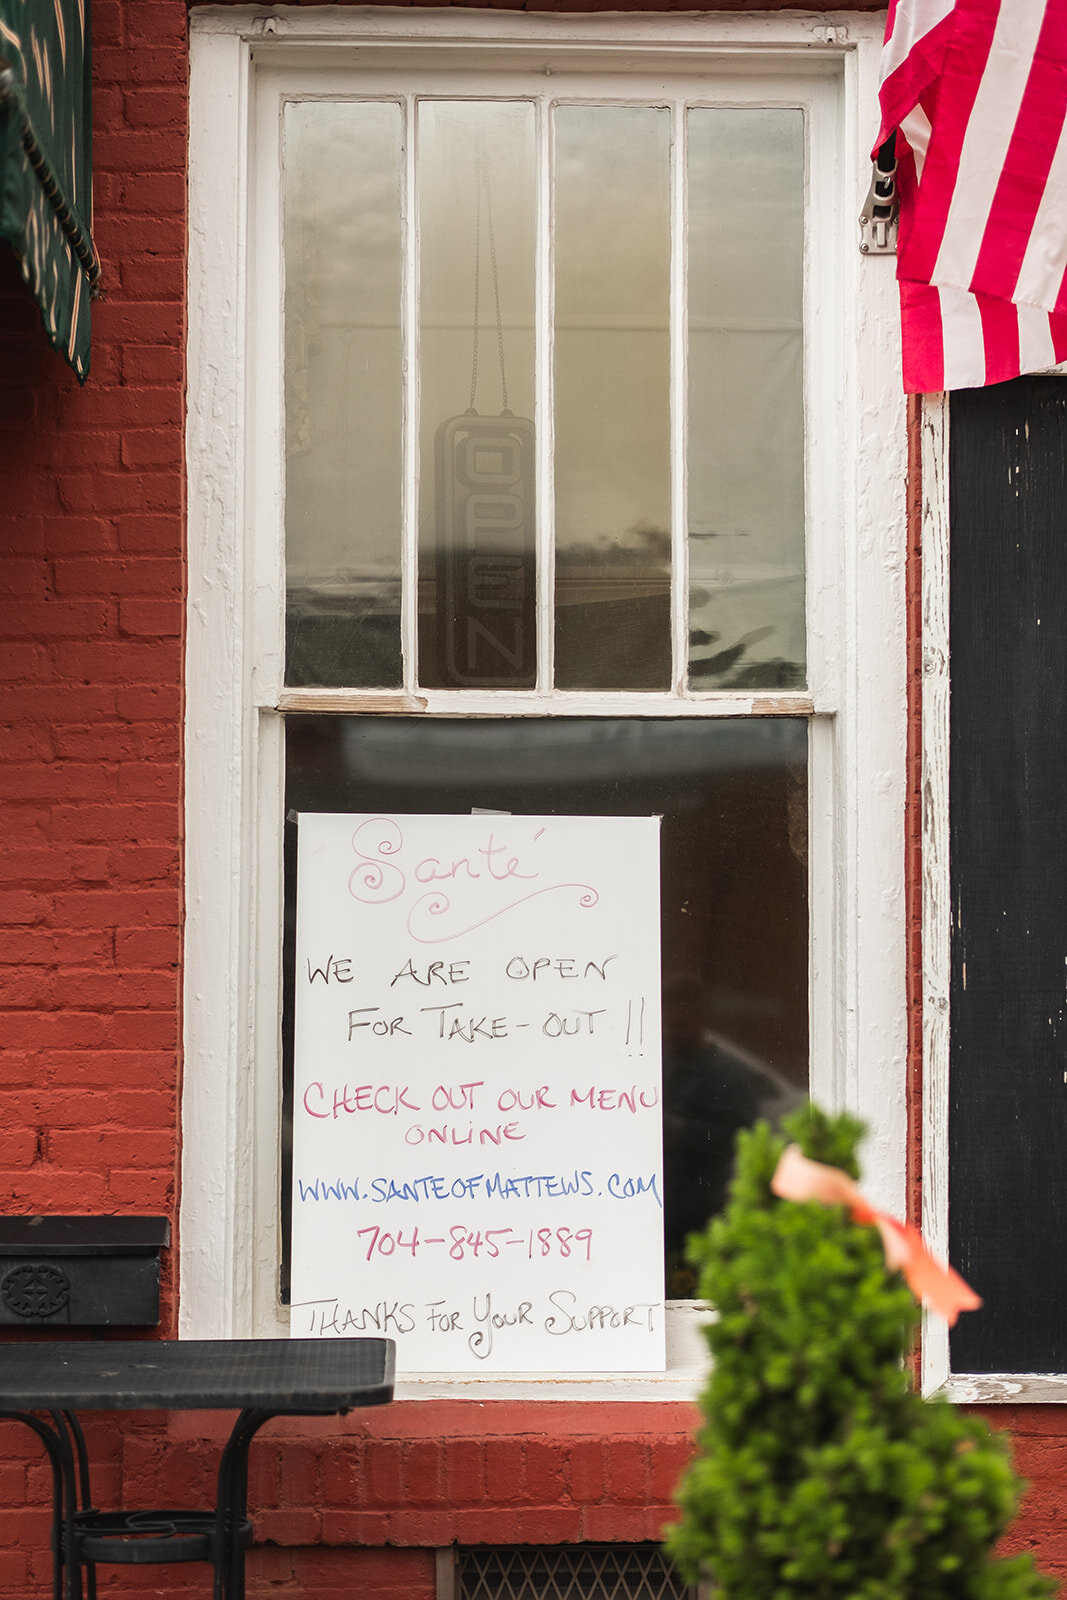 OPEN
Santé
WE ARE OPEN
FOR TAKE-OUT !!
CHECK OUT OUR MENU
ONLINE
WWW.SANTEOFMATTEWS.COM
704-845-1889
THANKS FOR YOUR SUPPORT